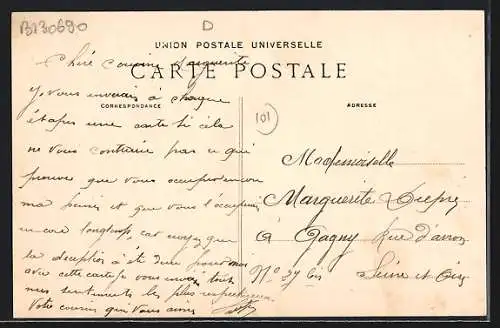 B130690
D
UNION POSTALE UNIVERSELLE
Chère Cousine Marguerite
CARTE POSTALE
Je vous enverais à chaque
CORRESPONDANCE
ADRESSE
étapes une carte si cela
101
ne vous contrarie pas ce qui
prouvera que vous occupez encore
ma pensée et que vous l'occuperez
encore longtemps, car croyez que
la déception à été dure pour moi
avec cette carte je vous envoie tous
mes sentiments les plus respectueux
Votre cousin qui vous aime
Mademoiselle
Marguerite
à Gagny Rue d'avron
N° 27 bis
Seine et Oise